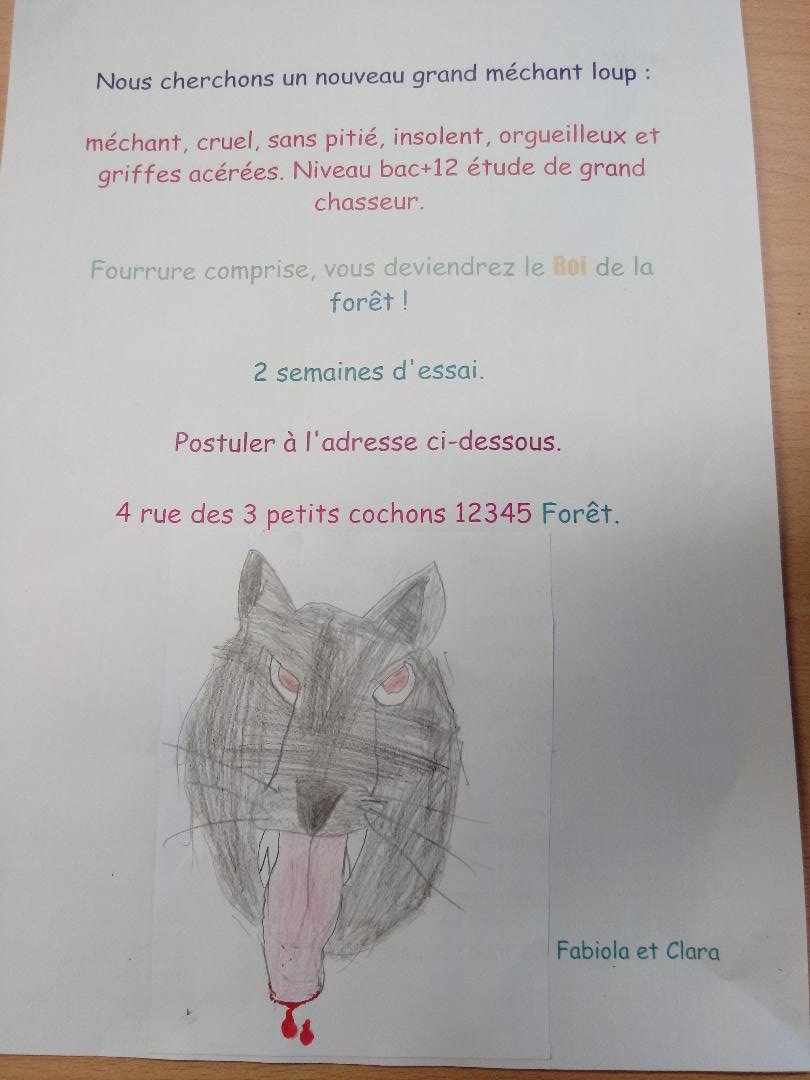 Nous cherchons un nouveau grand méchant loup :
méchant, cruel, sans pitié, insolent, orgueilleux et
griffes acérées. Niveau bac+12 étude de grand
chasseur.
Fourrure comprise, vous deviendrez le Roi de la
forêt !
2 semaines d'essai.
Postuler à l'adresse ci-dessous.
4 rue des 3 petits cochons 12345 Forêt.
Fabiola et Clara